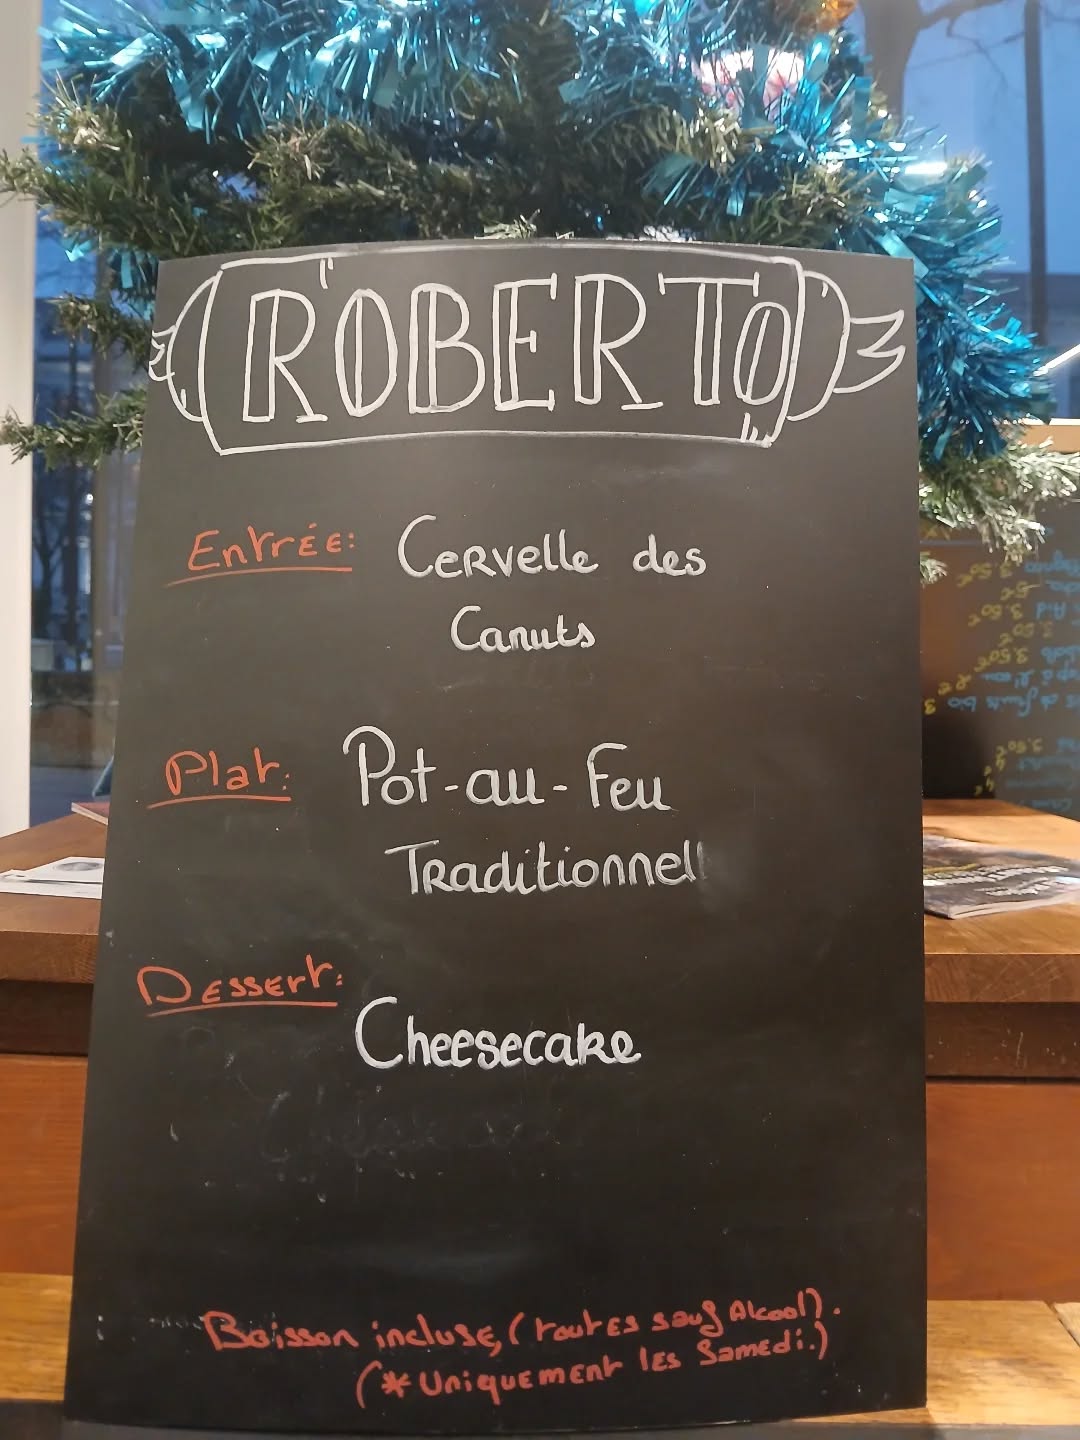 ROBERTO
Entrée: Cervelle des
Canuts
Plat: Pot-au-Feu
Traditionnell
Dessert:
Cheesecake
Boisson incluse, (toutes sauf Alcool).
(*Uniquement les Samedi.)
3.50€
5€
3.50€
3.50€